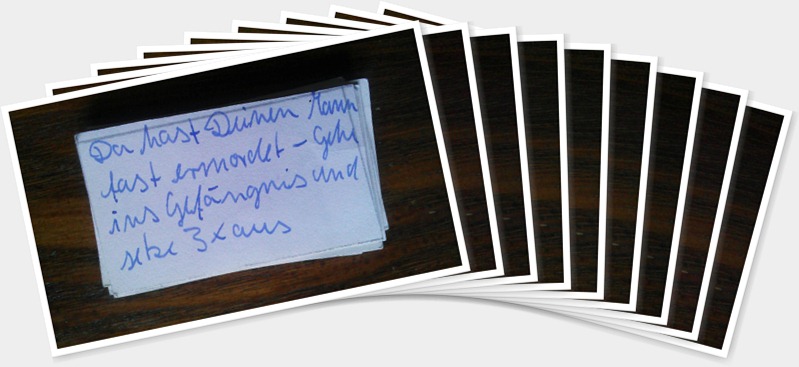 Du hast Deinen Mann
fast ermordet - Gehe
ins Gefängnis und
setze 3x aus